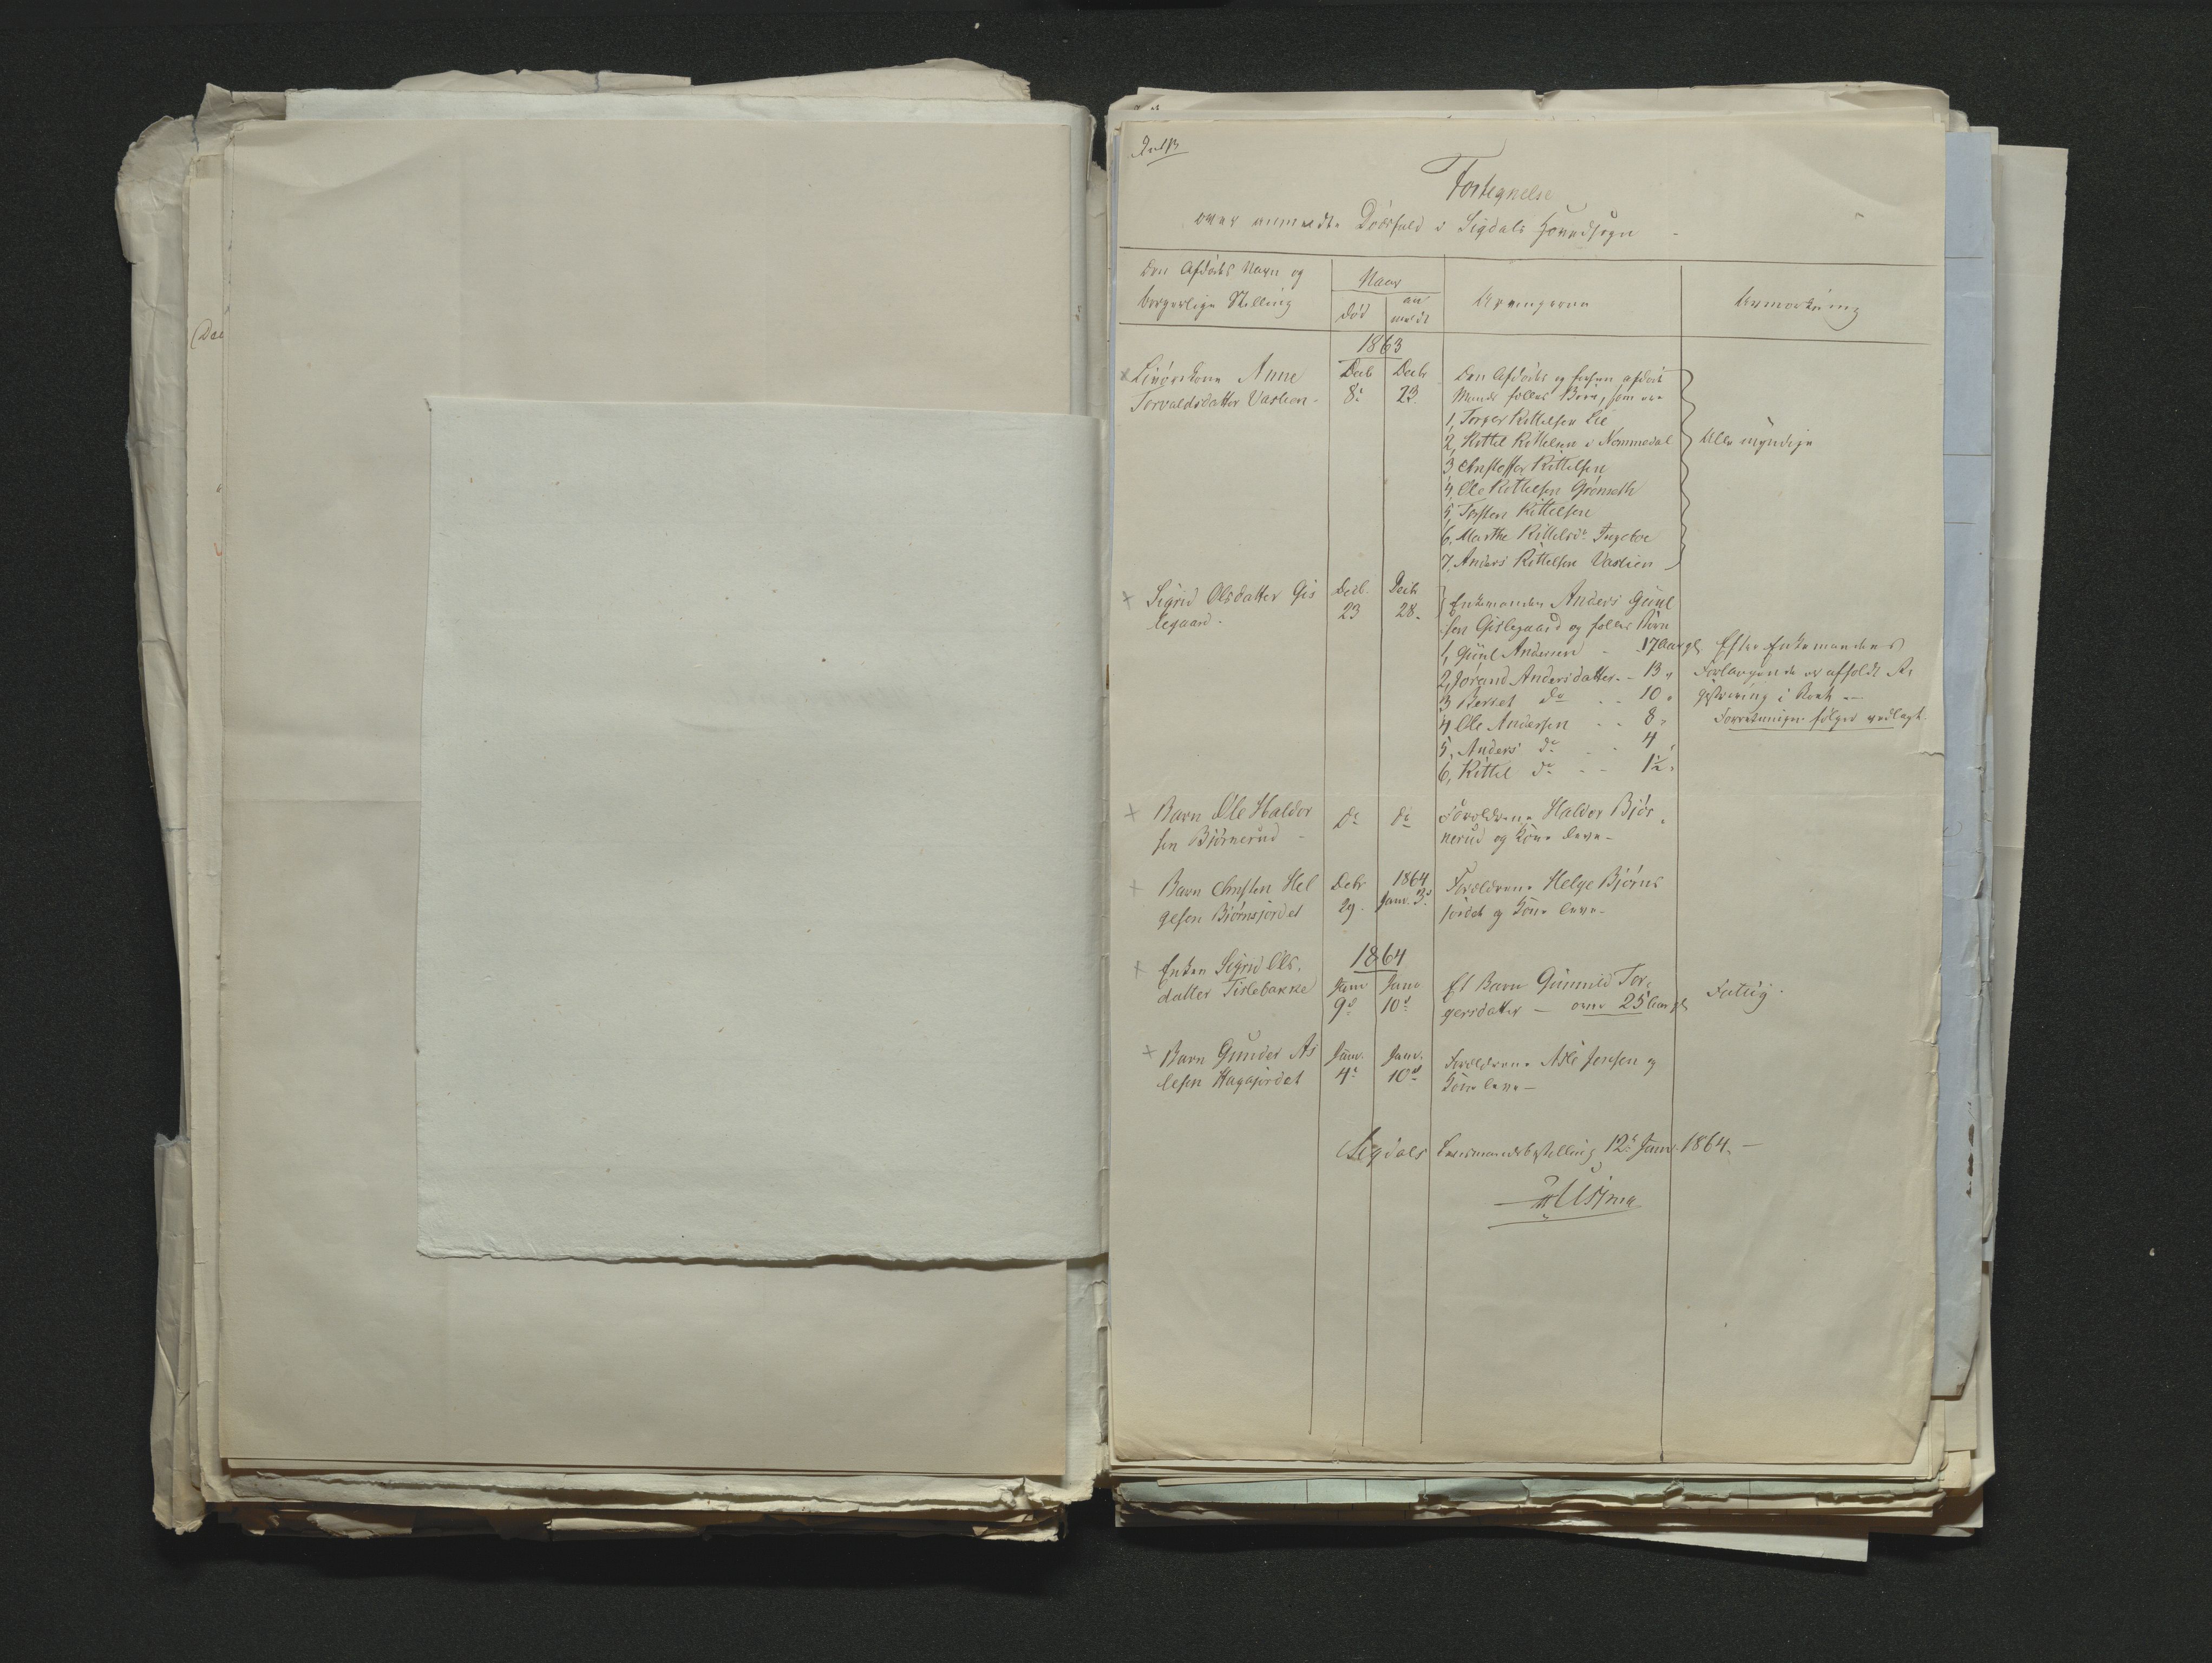 Fortegnelse
over anmeldte Dödsfald i Sigdals Hovedsogn
Den Afdødes Navn og
borgerlige Stilling
Naar
död
an
meldt
Arvingerne
Anmærkning
1863
Anne
Torvaldsdatter Vaslien
Decb
8de
Decbr
23.
Den Afdødes og forhen afdøde
Mands fælles Börn, som ere
1, Torger Kittelsen Lie
2, Kittel Kittelsen i Nommedal
3 Christoffer Kittelsen
4, Ole Kittelsen Grönseth
5, Torsten Kittelsen
6, Marthe Kittelsdr
7, Anders Kittelsen Vaslien
Alle myndige
Sigrid Olsdatter Gis
legaard.
Decb.
23
Decbr
28.
Enkemanden Anders Guul
sen Gislegaard og fælles Börn
1, Guul Andersen - 17 Aar gl
2, Jörand Andersdatter - 13 "
3 Berret do - - 10 "
4 Ole Andersen - - 8 "
5, Anders do - - 4 "
6, Kittel do - - 1½ "
Efter Enkemandens
Forlangende er afholdt Re
gistrering i Boet -
Forretningen fölger vedlagt.
Barn Ole Haldor
sen Björnerud -
do
do
Forældrene Haldor Björ
nerud og Kone leve -
Barn Christen Hel
gesen Björnsjordet
Decbr
29.
1864
Janv. 3de
Forældrene Helge Björns
jordet og Kone leve -
Enken Sigrid Ols
datter Tislebakke
1864
Janv
9de
Janv
10de
Et Barn Gunnild Tor
gersdatter - over 25 Aar gl
Fattig.
Barn Gunder As
lesen Hagajordet
Janv.
4de
Janv.
10de
Forældrene Asle Jensen og
Kone leve -
Sigdals Lensmandsbestilling 12te Janv. 1864. -